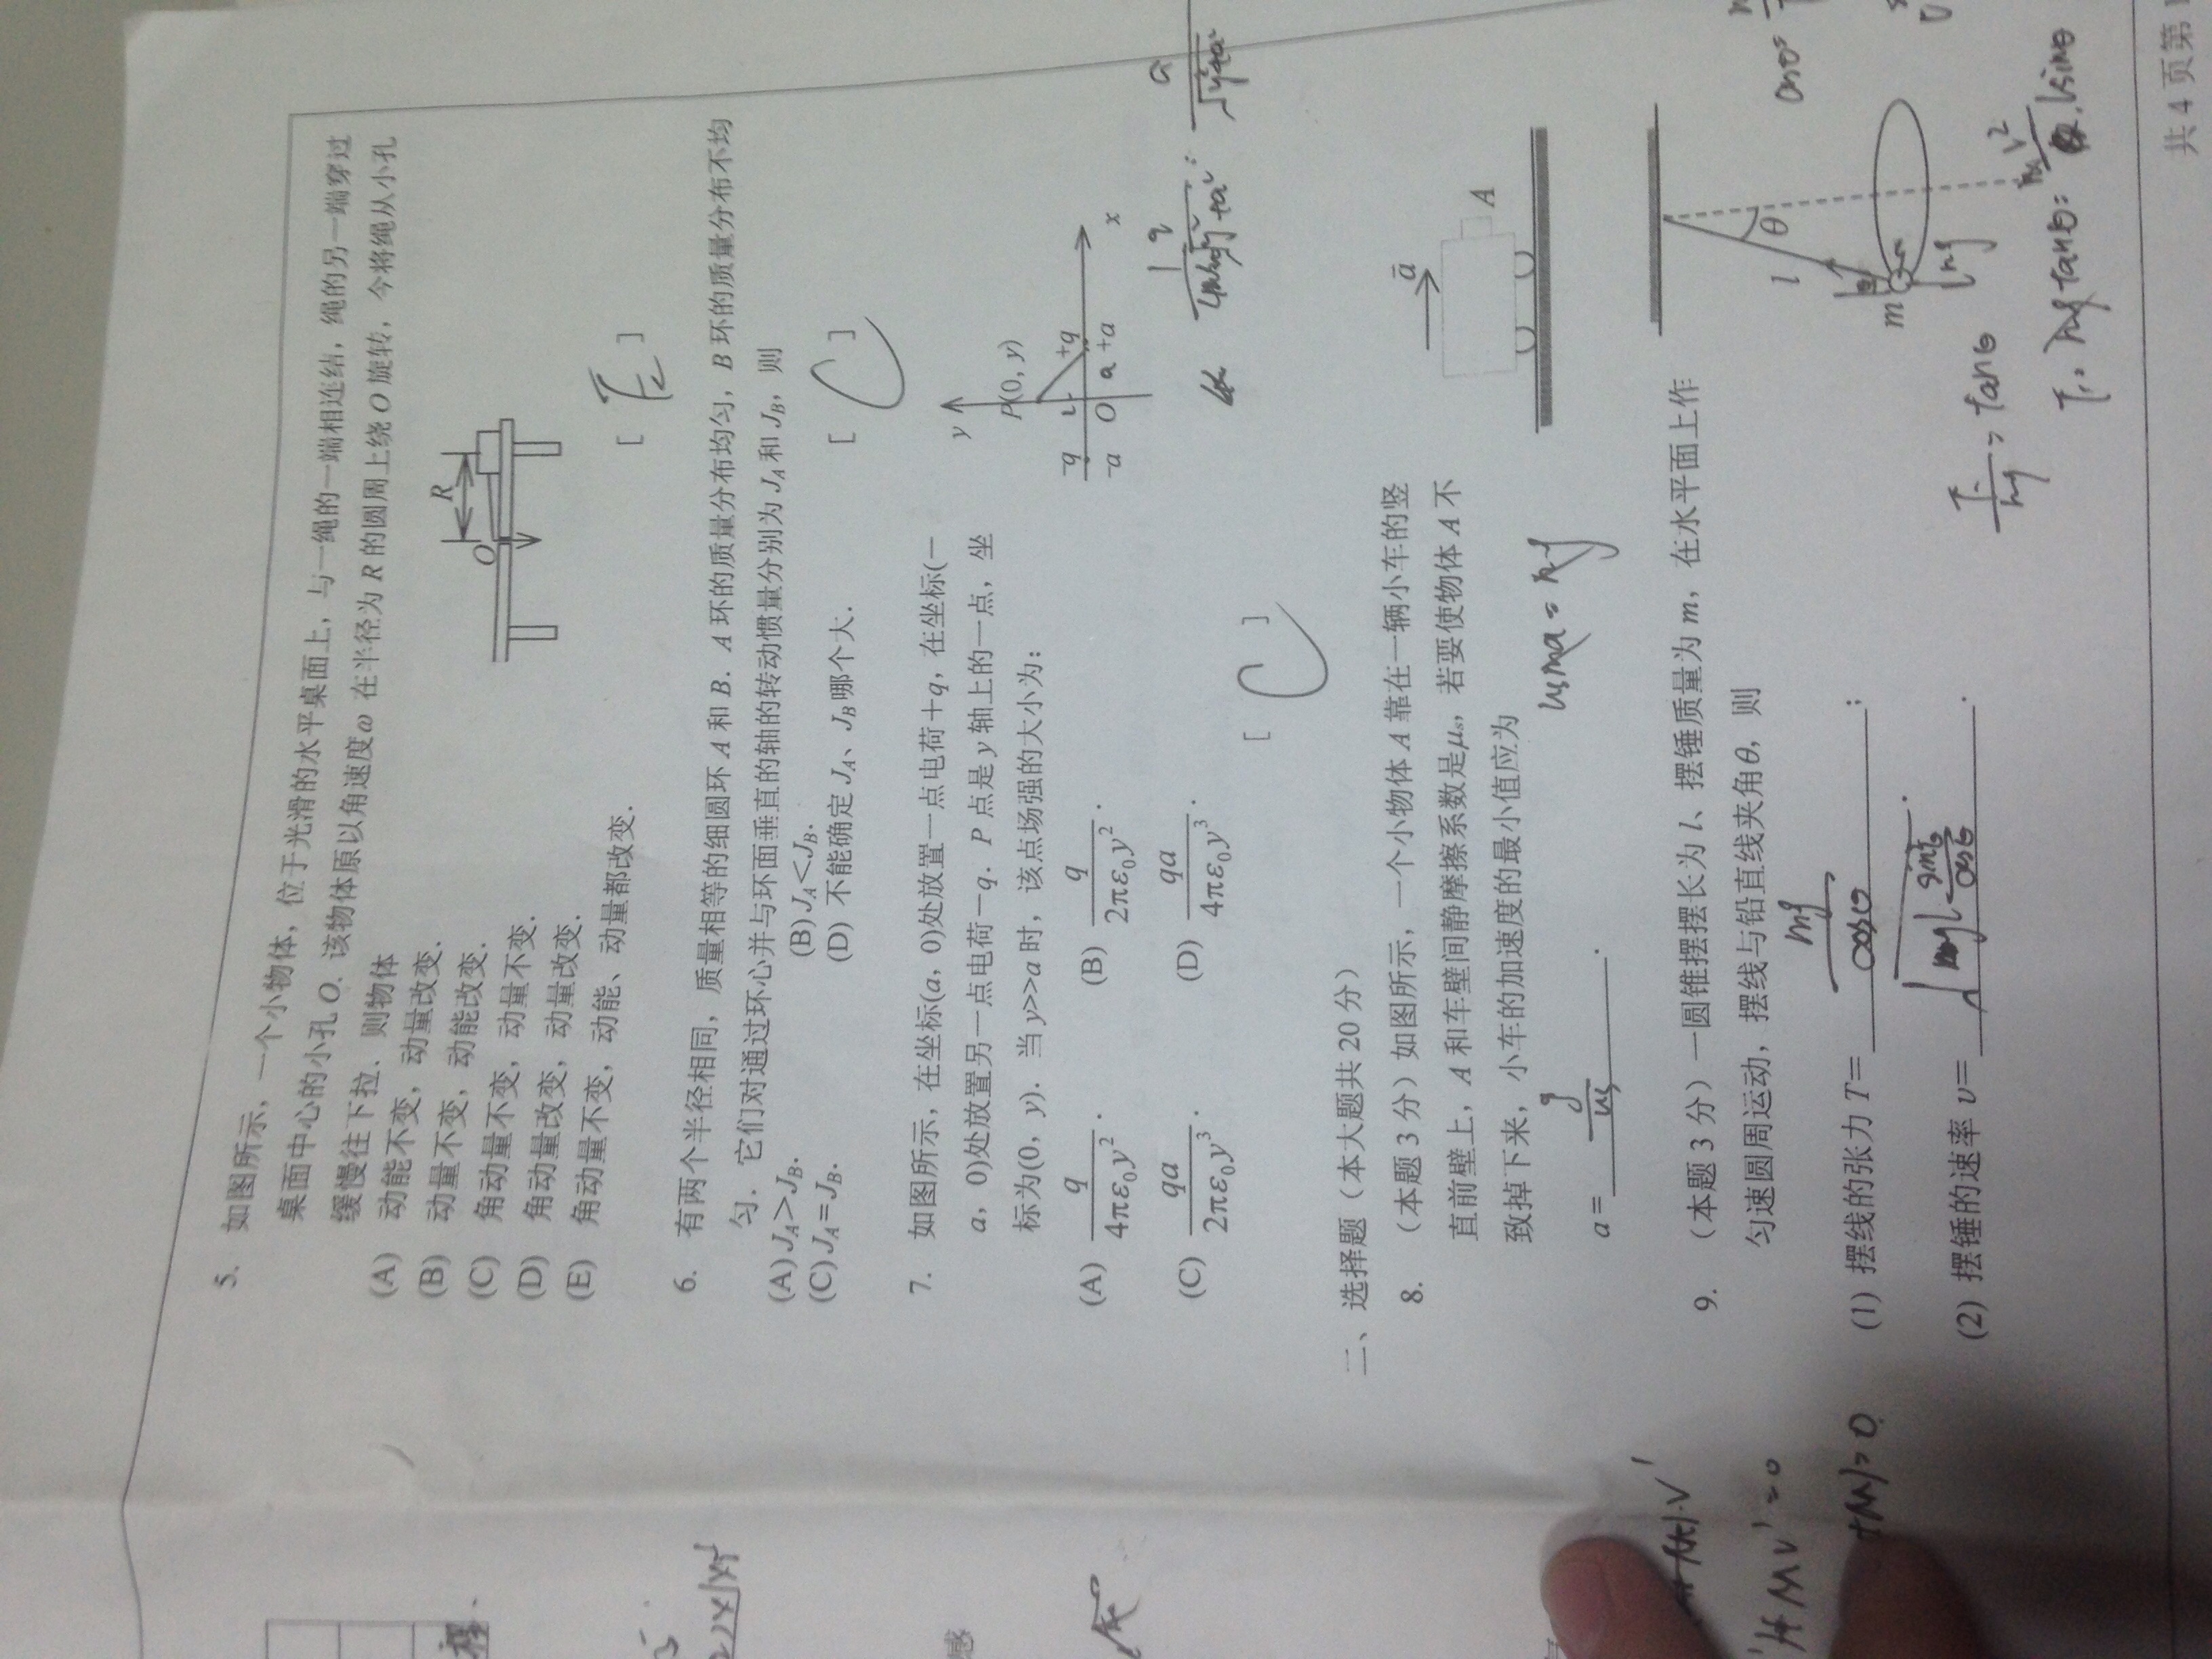 5. 如图所示，一个小物体，位于光滑的水平桌面上，与一绳的一端相连结，绳的另一端穿过
桌面中心的小孔 O. 该物体原以角速度ω 在半径为 R 的圆周上绕 O 旋转，今将绳从小孔
缓慢往下拉．则物体
(A) 动能不变，动量改变．
(B) 动量不变，动能改变．
(C) 角动量不变，动量不变．
(D) 角动量改变，动量改变．
(E) 角动量不变，动能、动量都改变．
R
O
[ E ]
6. 有两个半径相同，质量相等的细圆环 A 和 B．A 环的质量分布均匀，B 环的质量分布不均
匀．它们对通过环心并与环面垂直的轴的转动惯量分别为 J_A 和 J_B，则
(A) J_A＞J_B． (B) J_A＜J_B．
(C) J_A＝J_B． (D) 不能确定 J_A、J_B 哪个大．
[ C ]
7. 如图所示，在坐标(a，0)处放置一点电荷＋q，在坐标(－
a，0)处放置另一点电荷－q．P 点是 y 轴上的一点，坐
标为(0，y)．当 y>>a 时，该点场强的大小为：
(A) q/4πε₀y² ． (B) q/2πε₀y² ．
(C) qa/2πε₀y³ ． (D) qa/4πε₀y³ ．
[ C ]
y
P(0, y)
-q +q
-a O a +a x
a/√y²+a²
二、选择题（本大题共 20 分）
8. （本题 3 分）如图所示，一个小物体 A 靠在一辆小车的竖
直前壁上，A 和车壁间静摩擦系数是μₛ，若要使物体 A 不
致掉下来，小车的加速度的最小值应为
a = g/us ．
a
A
usma = mg
9. （本题 3 分）一圆锥摆摆长为 l、摆锤质量为 m，在水平面上作
匀速圆周运动，摆线与铅直线夹角θ，则
(1) 摆线的张力 T＝ mg/cosθ ；
(2) 摆锤的速率 υ＝ √gl sin²θ/cosθ ．
l θ
m
mg
cosθ=
= tanθ
mg tanθ=
lsinθ
共 4 页第
感